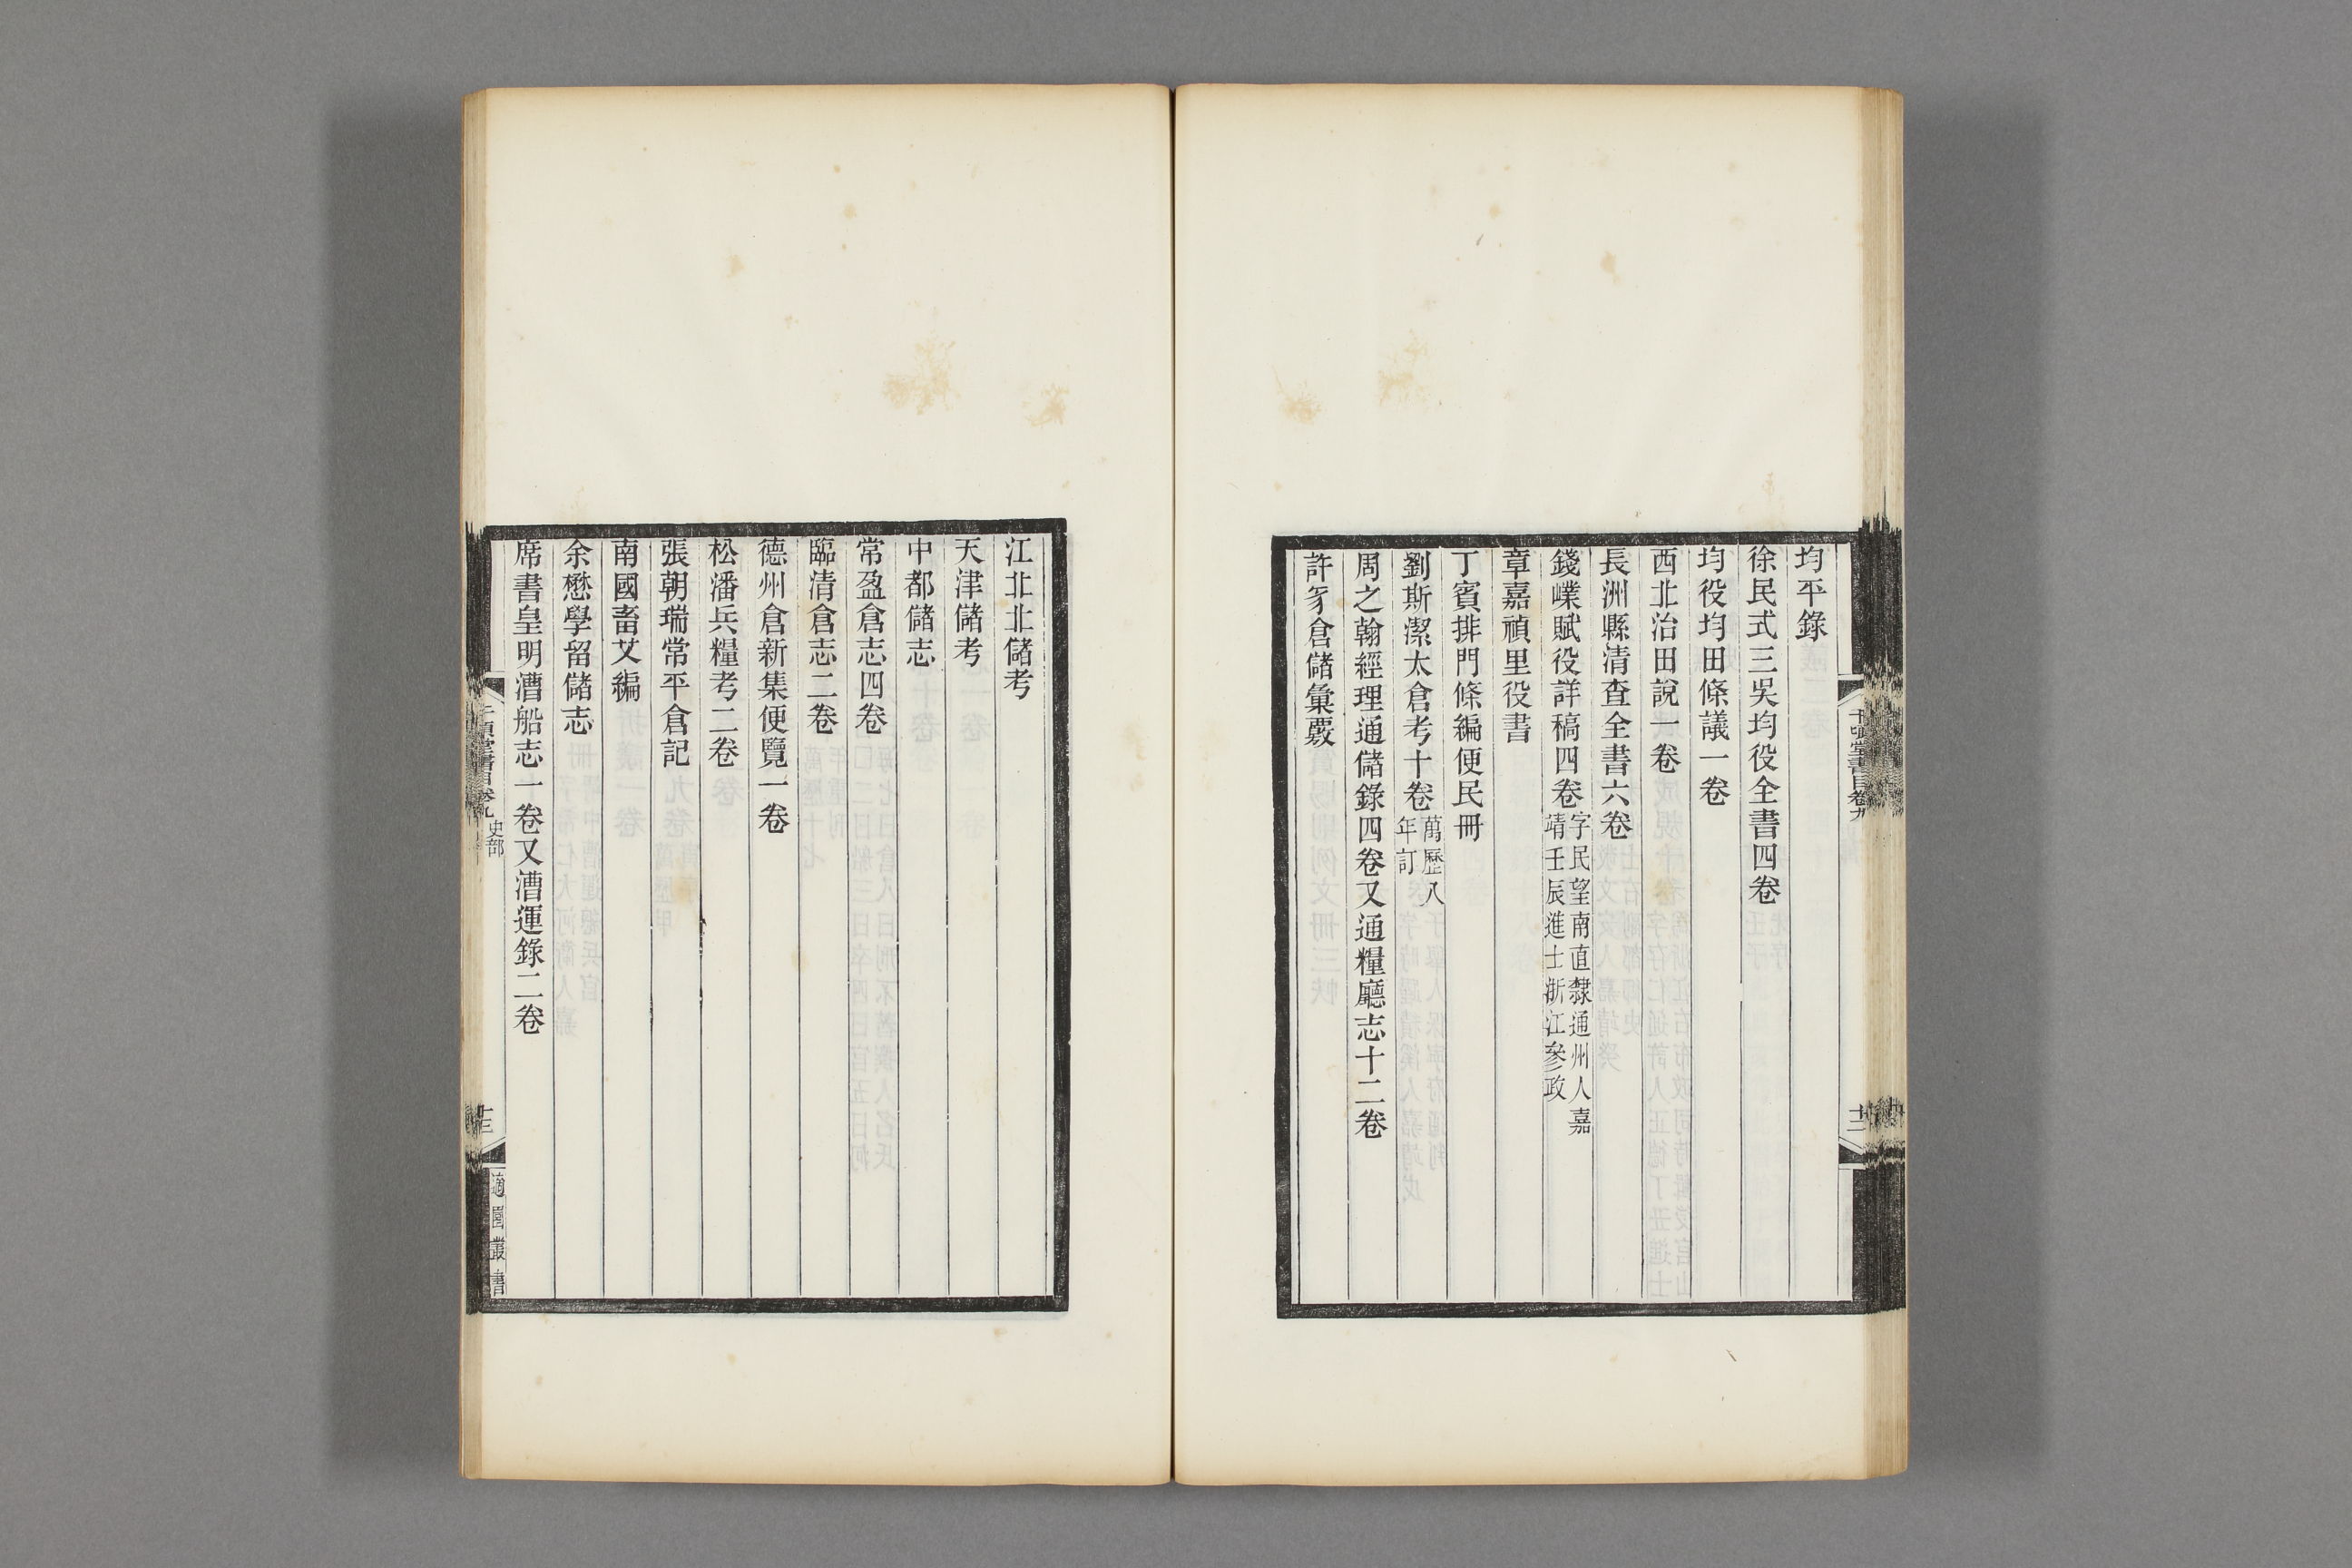 均平錄
徐民式三吳均役全書四卷
均役均田條議一卷
西北治田說一卷
長洲縣清查全書六卷
錢嶫賦役詳稿四卷字民望南直隸通州人嘉
靖壬辰進士浙江參政
章嘉禎里役書
丁賓排門條編便民冊
劉斯潔太倉考十卷萬歷八
年訂
周之翰經理通儲錄四卷又通糧廳志十二卷
許豸倉儲彙覈
千頃堂書目卷九
十二
江北北儲考
天津儲考
中都儲志
常盈倉志四卷
臨清倉志二卷
德州倉新集便覽一卷
松潘兵糧考二卷
張朝瑞常平倉記
南國畜艾編
余懋學留儲志
席書皇明漕船志一卷又漕運錄二卷
千頃堂書目卷九 史部
十三
適園叢書